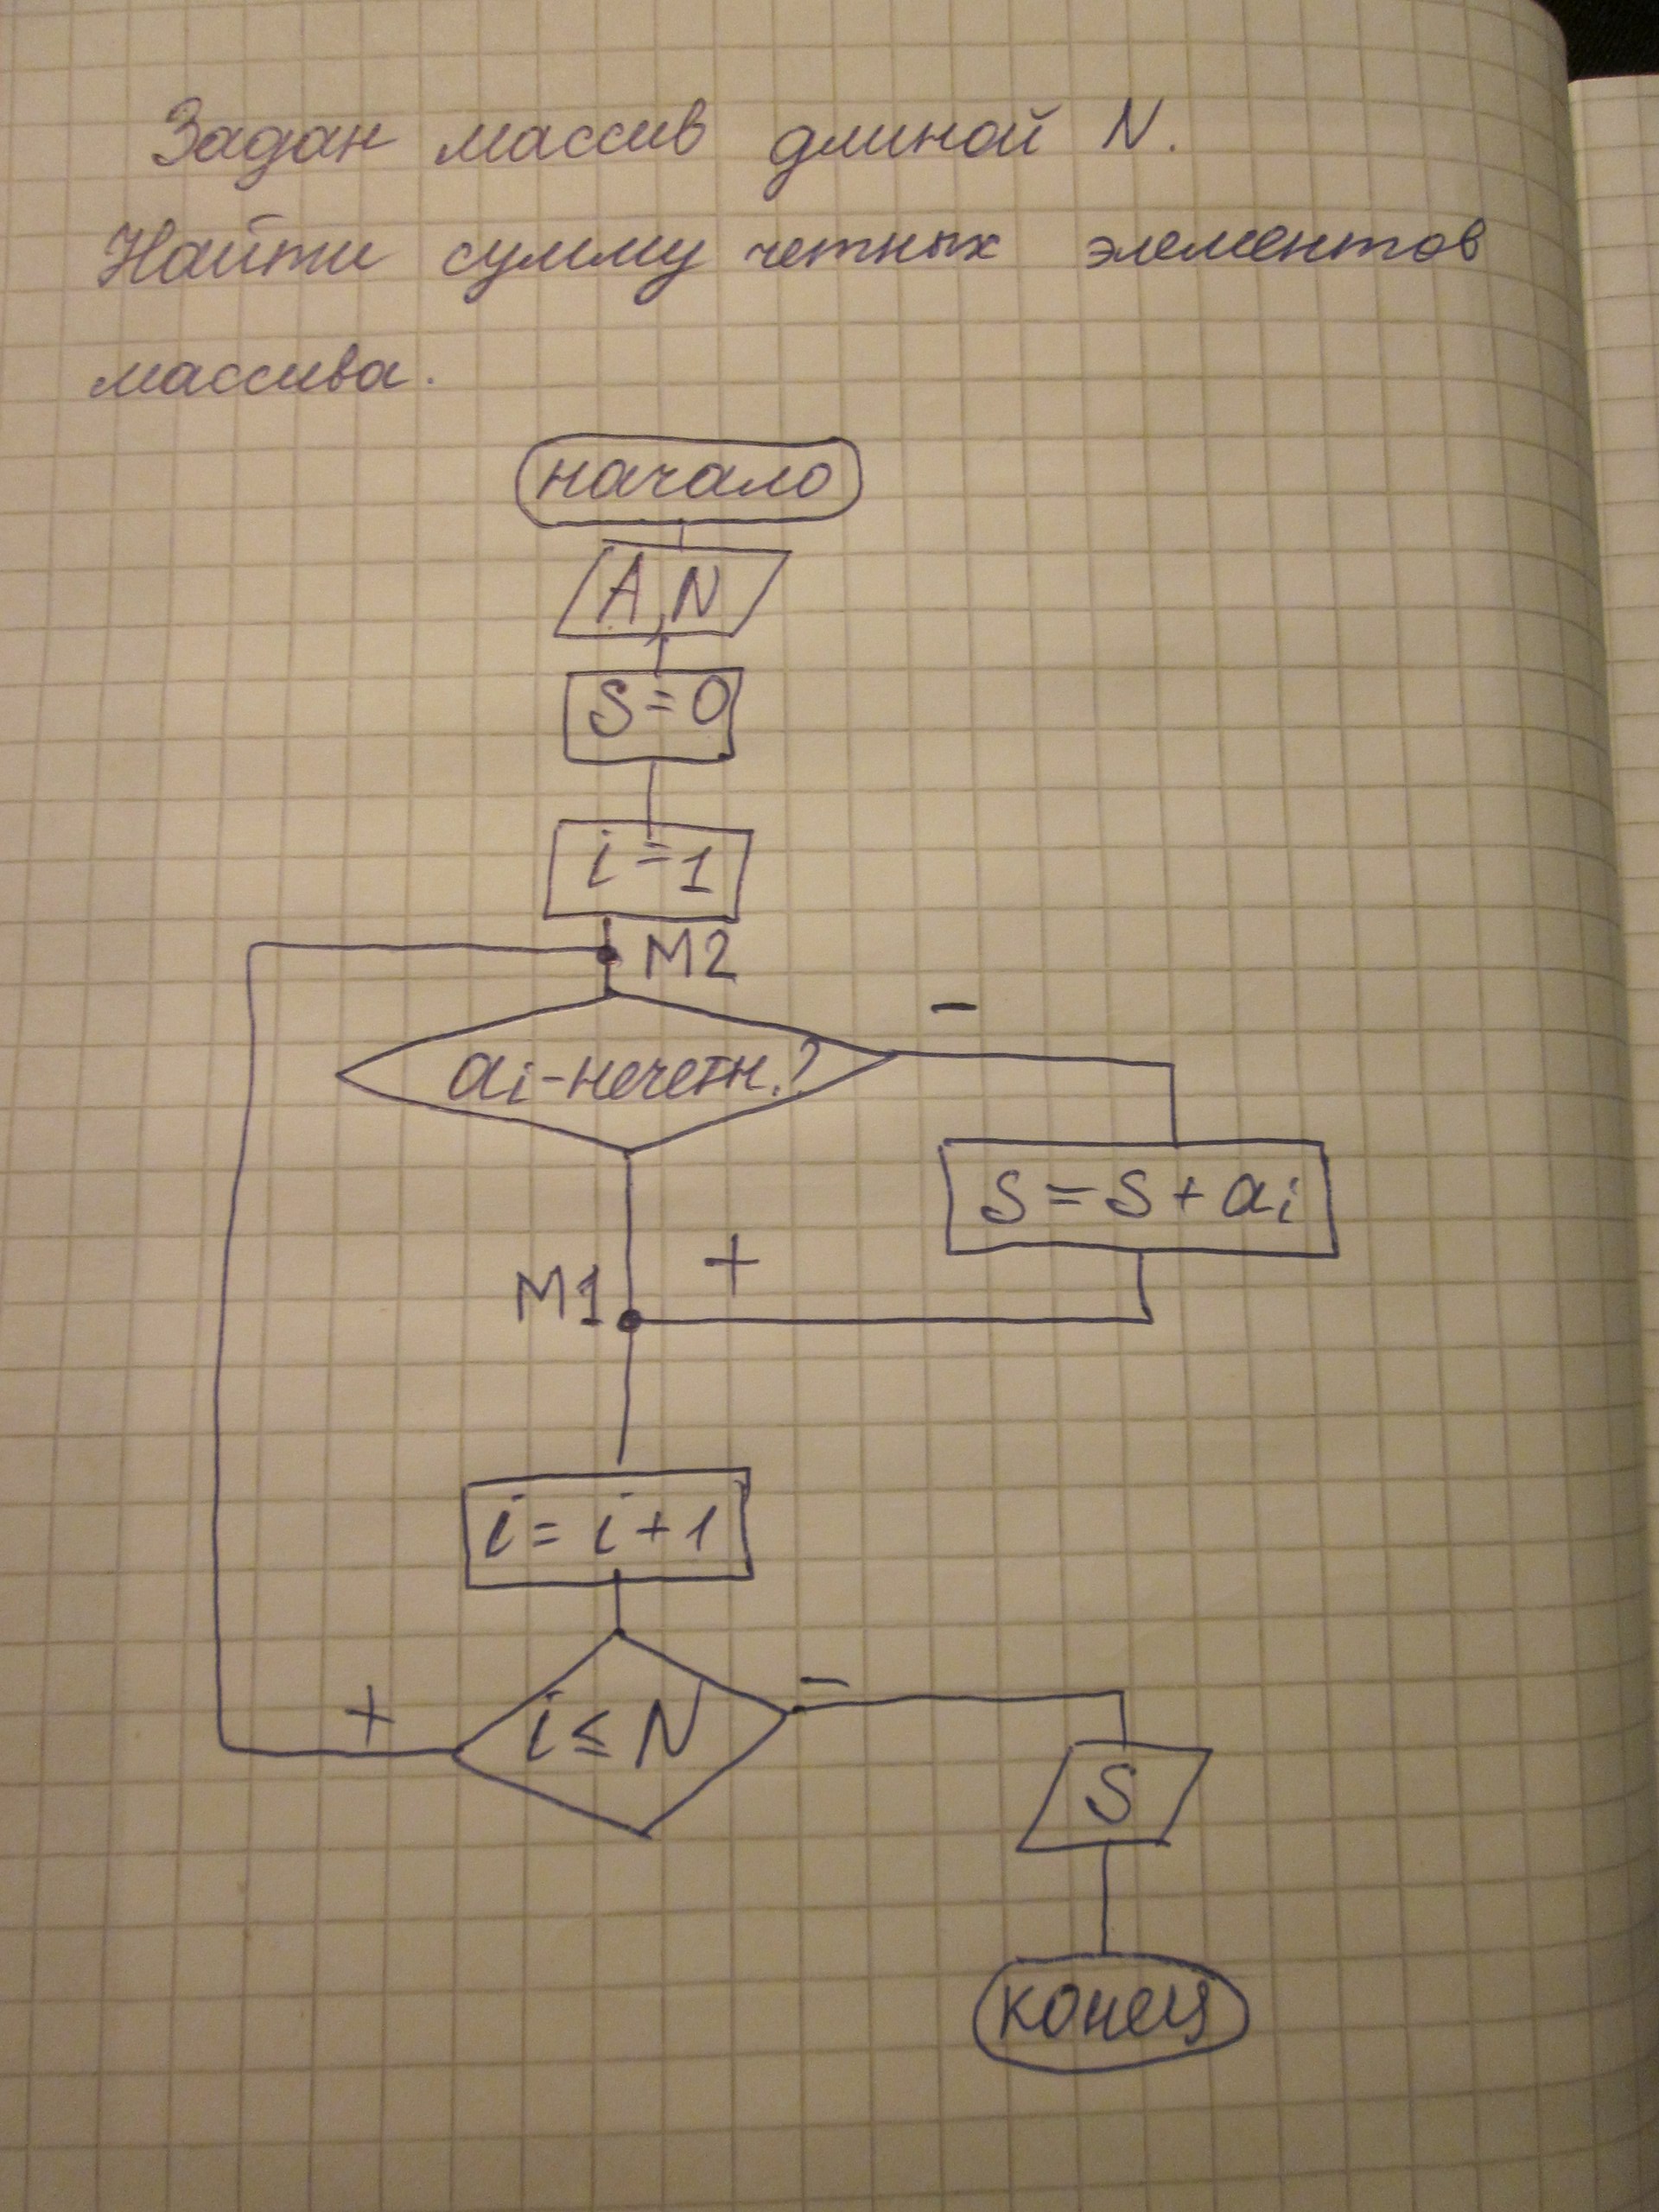 Задан массив длиной N.
Найти сумму четных элементов
массива.
начало
A, N
S=0
i=1
M2
ai-нечетн.?
-
S=S+ai
+
M1
i=i+1
i≤N
+
-
S
конец